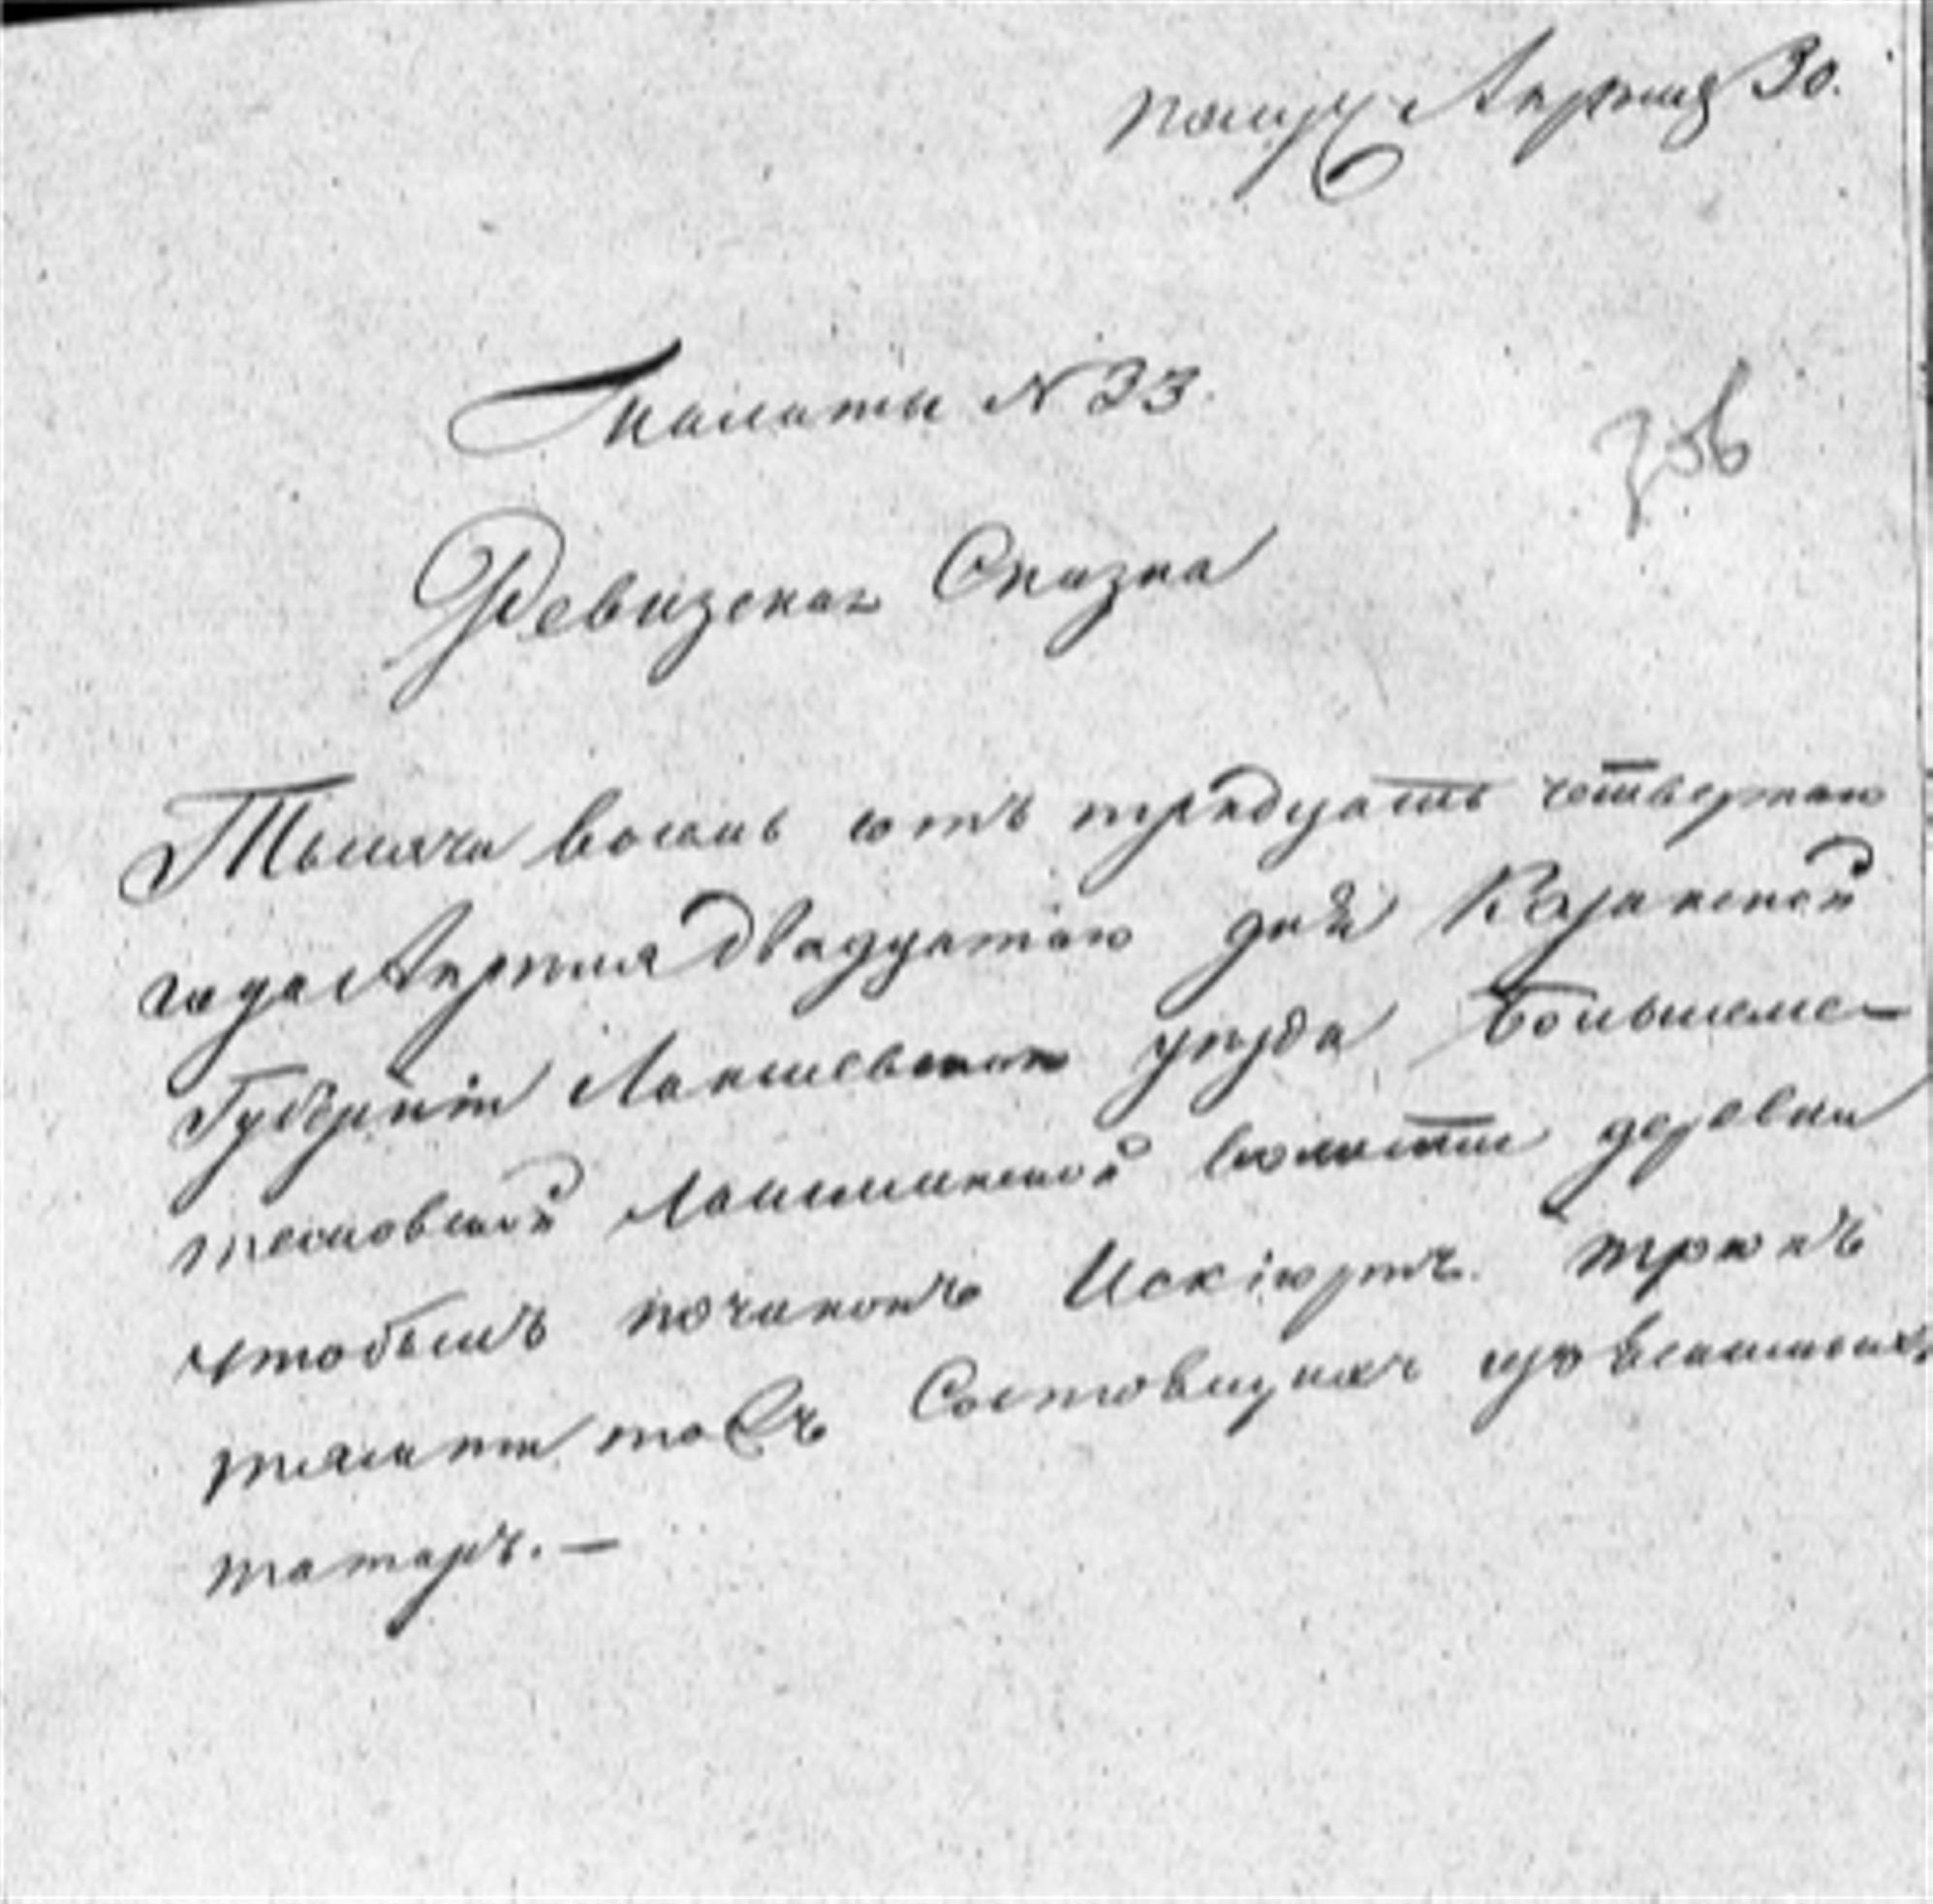 получ Апреля 30.
Палаты N 33.
356
Ревизская Сказка
Тысяча восемь сотъ тридцать четвертаго
года Апреля двадцатаго дня Казанской
Губернiи Лаишевскаго уезда Большеме-
тесковской волости деревни
чтобылъ починокъ Искiюртъ
тожъ Состоящихъ
татаръ. —